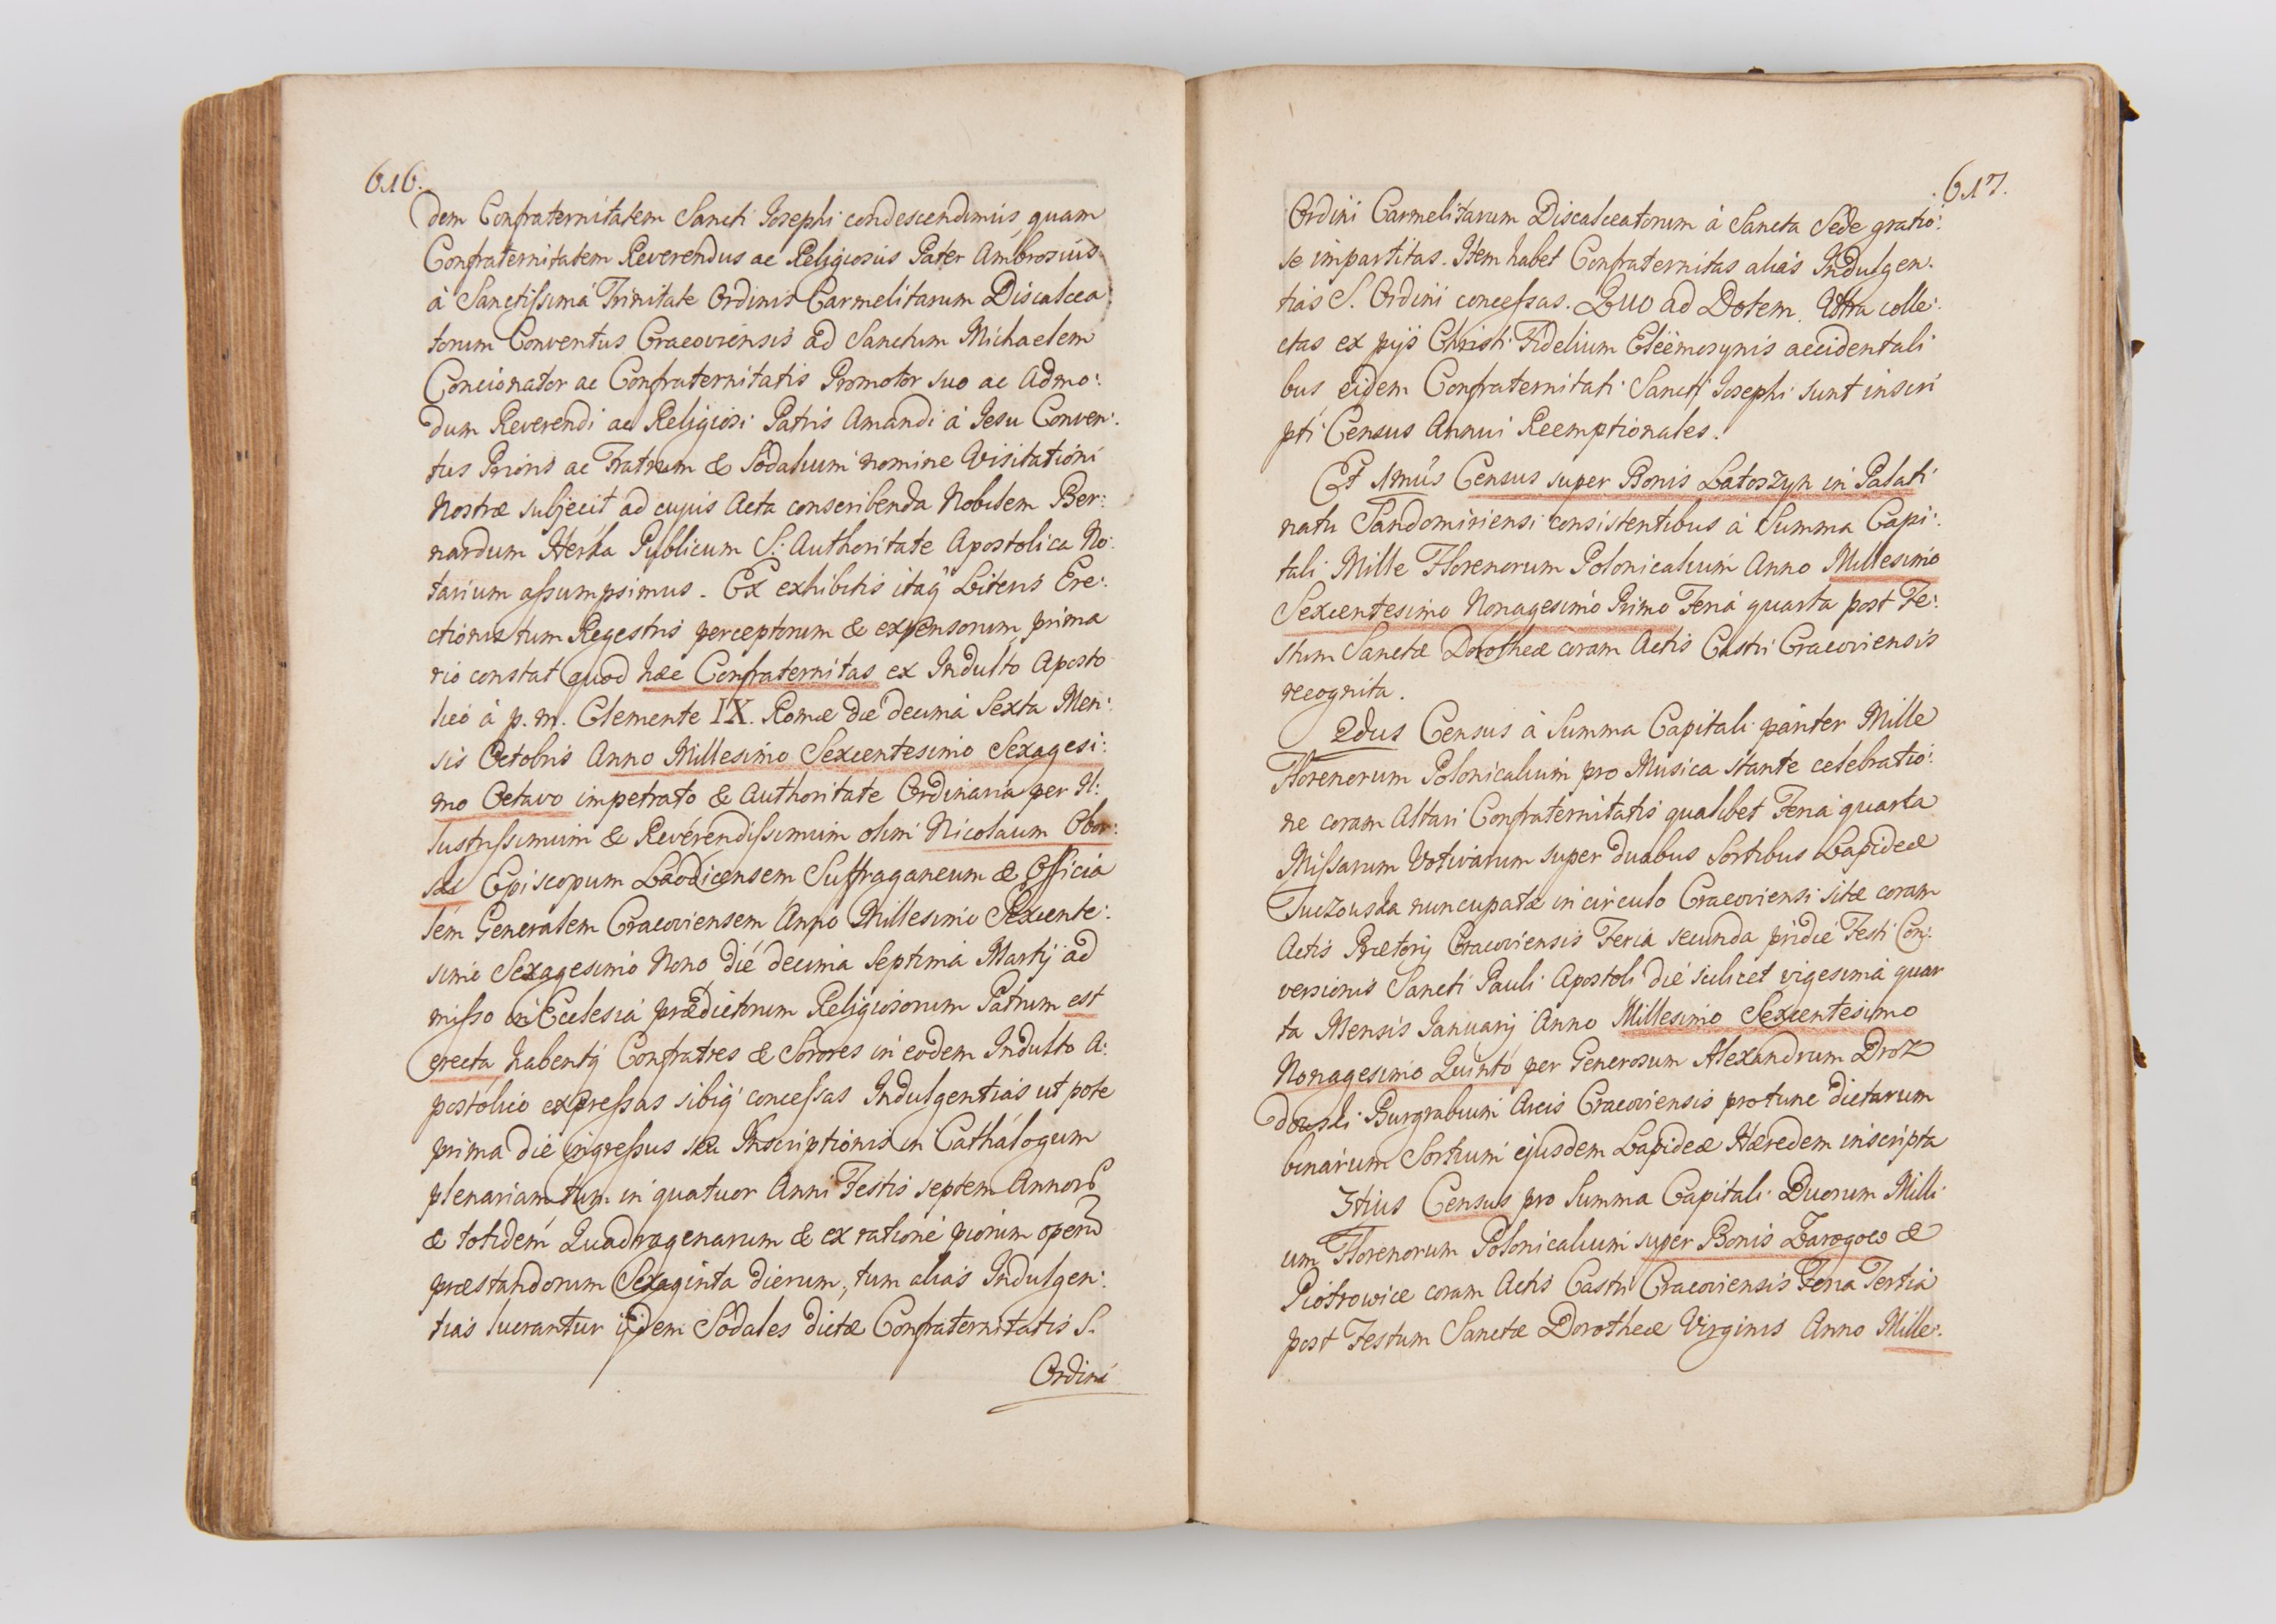 616.
dem Confraternitatem Sancti Josephi condescendimus, quam
Confraternitatem Reverendus ac Religiosus Pater Ambrosius
à Sanctissima Trinitate Ordinis Carmelitarum Discalcea
torum Conventus Cracoviensis ad Sanctum Michaelem
Concionator ac Confraternitatis Promotor suo ac Admo:
dum Reverendi ac Religiosi Patris Amandi à Jesu Conven:
tus Prioris ac Fratrum & Sodalium nomine Visitationi
Nostræ subjecit ad cujus Acta conscribenda Nobilem Ber:
nardum Herka Publicum S: Authoritate Apostolica No:
tarium assumpsimus. Ex exhibitis itaq Literis Ere:
ctionis tum Regestris perceptorum & expensorum prima
rio constat quod hæc Confraternitas ex Indulto Aposto
lico à p. m. Clemente IX. Romæ die decima Sexta Men:
sis Octobris Anno Millesimo Sexcentesimo Sexagesi:
mo Octavo impetrato & Authoritate Ordinaria per Il:
lustrissimum & Reverendissimum olim Nicolaum Obor:
ski Episcopum Laodicensem Suffraganeum & Officia
lem Generalem Cracoviensem Anno Millesimo Sexcente:
simo Sexagesimo Nono die decima Septima Martij ad
misso in Ecclesia prædictorum Religiosorum Patrum est
erecta habentq Confratres & Sorores in eodem Indulto A:
postolico expressas sibiq concessas Indulgentias ut pote
prima die ingressus seu Inscriptionis in Cathalogum
plenariam tum in quatuor Anni Festis septem Annorũ
& totidem Quadragenarum & ex ratione piorum operũ
præstandorum Sexaginta dierum, tum alias Indulgen:
tias lucrantur ijdem Sodales dictæ Confraternitatis S.
Ordini
617.
Ordini Carmelitarum Discalceatorum à Sancta Sede gratio:
se impartitas. Item habet Confraternitas alias Indulgen:
tias S. Ordini concessas. Quo ad Dotem. Ultra colle:
ctas ex pijs Christi Fidelium Eleemosynis accidentali
bus eidem Confraternitati Sancti Josephi sunt inscri
pti Census Annui Reemptionales.
Et 1mus Census super Bonis Latoszyn in Palati
natu Sandomiriensi consistentibus à Summa Capi:
tali Mille Florenorum Polonicalium Anno Millesimo
Sexcentesimo Nonagesimo Primo Feria quarta post Fe:
stum Sanctæ Dorotheæ coram Actis Castri Cracoviensis
recognita.
2dus Census à Summa Capitali pariter Mille
Florenorum Polonicalium pro Musica stante celebratio:
ne coram Altari Confraternitatis qualibet Feria quarta
Missarum Votivarum super duabus Sortibus Lapideæ
nuncupatæ in circulo Cracoviensi sitæ coram
Actis Prætorij Cracoviensis Feria secunda pridie Festi Con:
versionis Sancti Pauli Apostoli die scilicet vigesima quar
ta Mensis Januarij Anno Millesimo Sexcentesimo
Nonagesimo Quinto per Generosum Alexandrum Droz
dowski Burgrabium Arcis Cracoviensis pro tunc dictarum
binarum Sortium ejusdem Lapideæ Hæredem inscripta
3tius Census pro Summa Capitali Duorum Milli
um Florenorum Polonicalium super Bonis Zarogow &
Piotrowice coram Actis Castri Cracoviensis Feria Tertia
post Festum Sanctæ Dorotheæ Virginis Anno Mille: